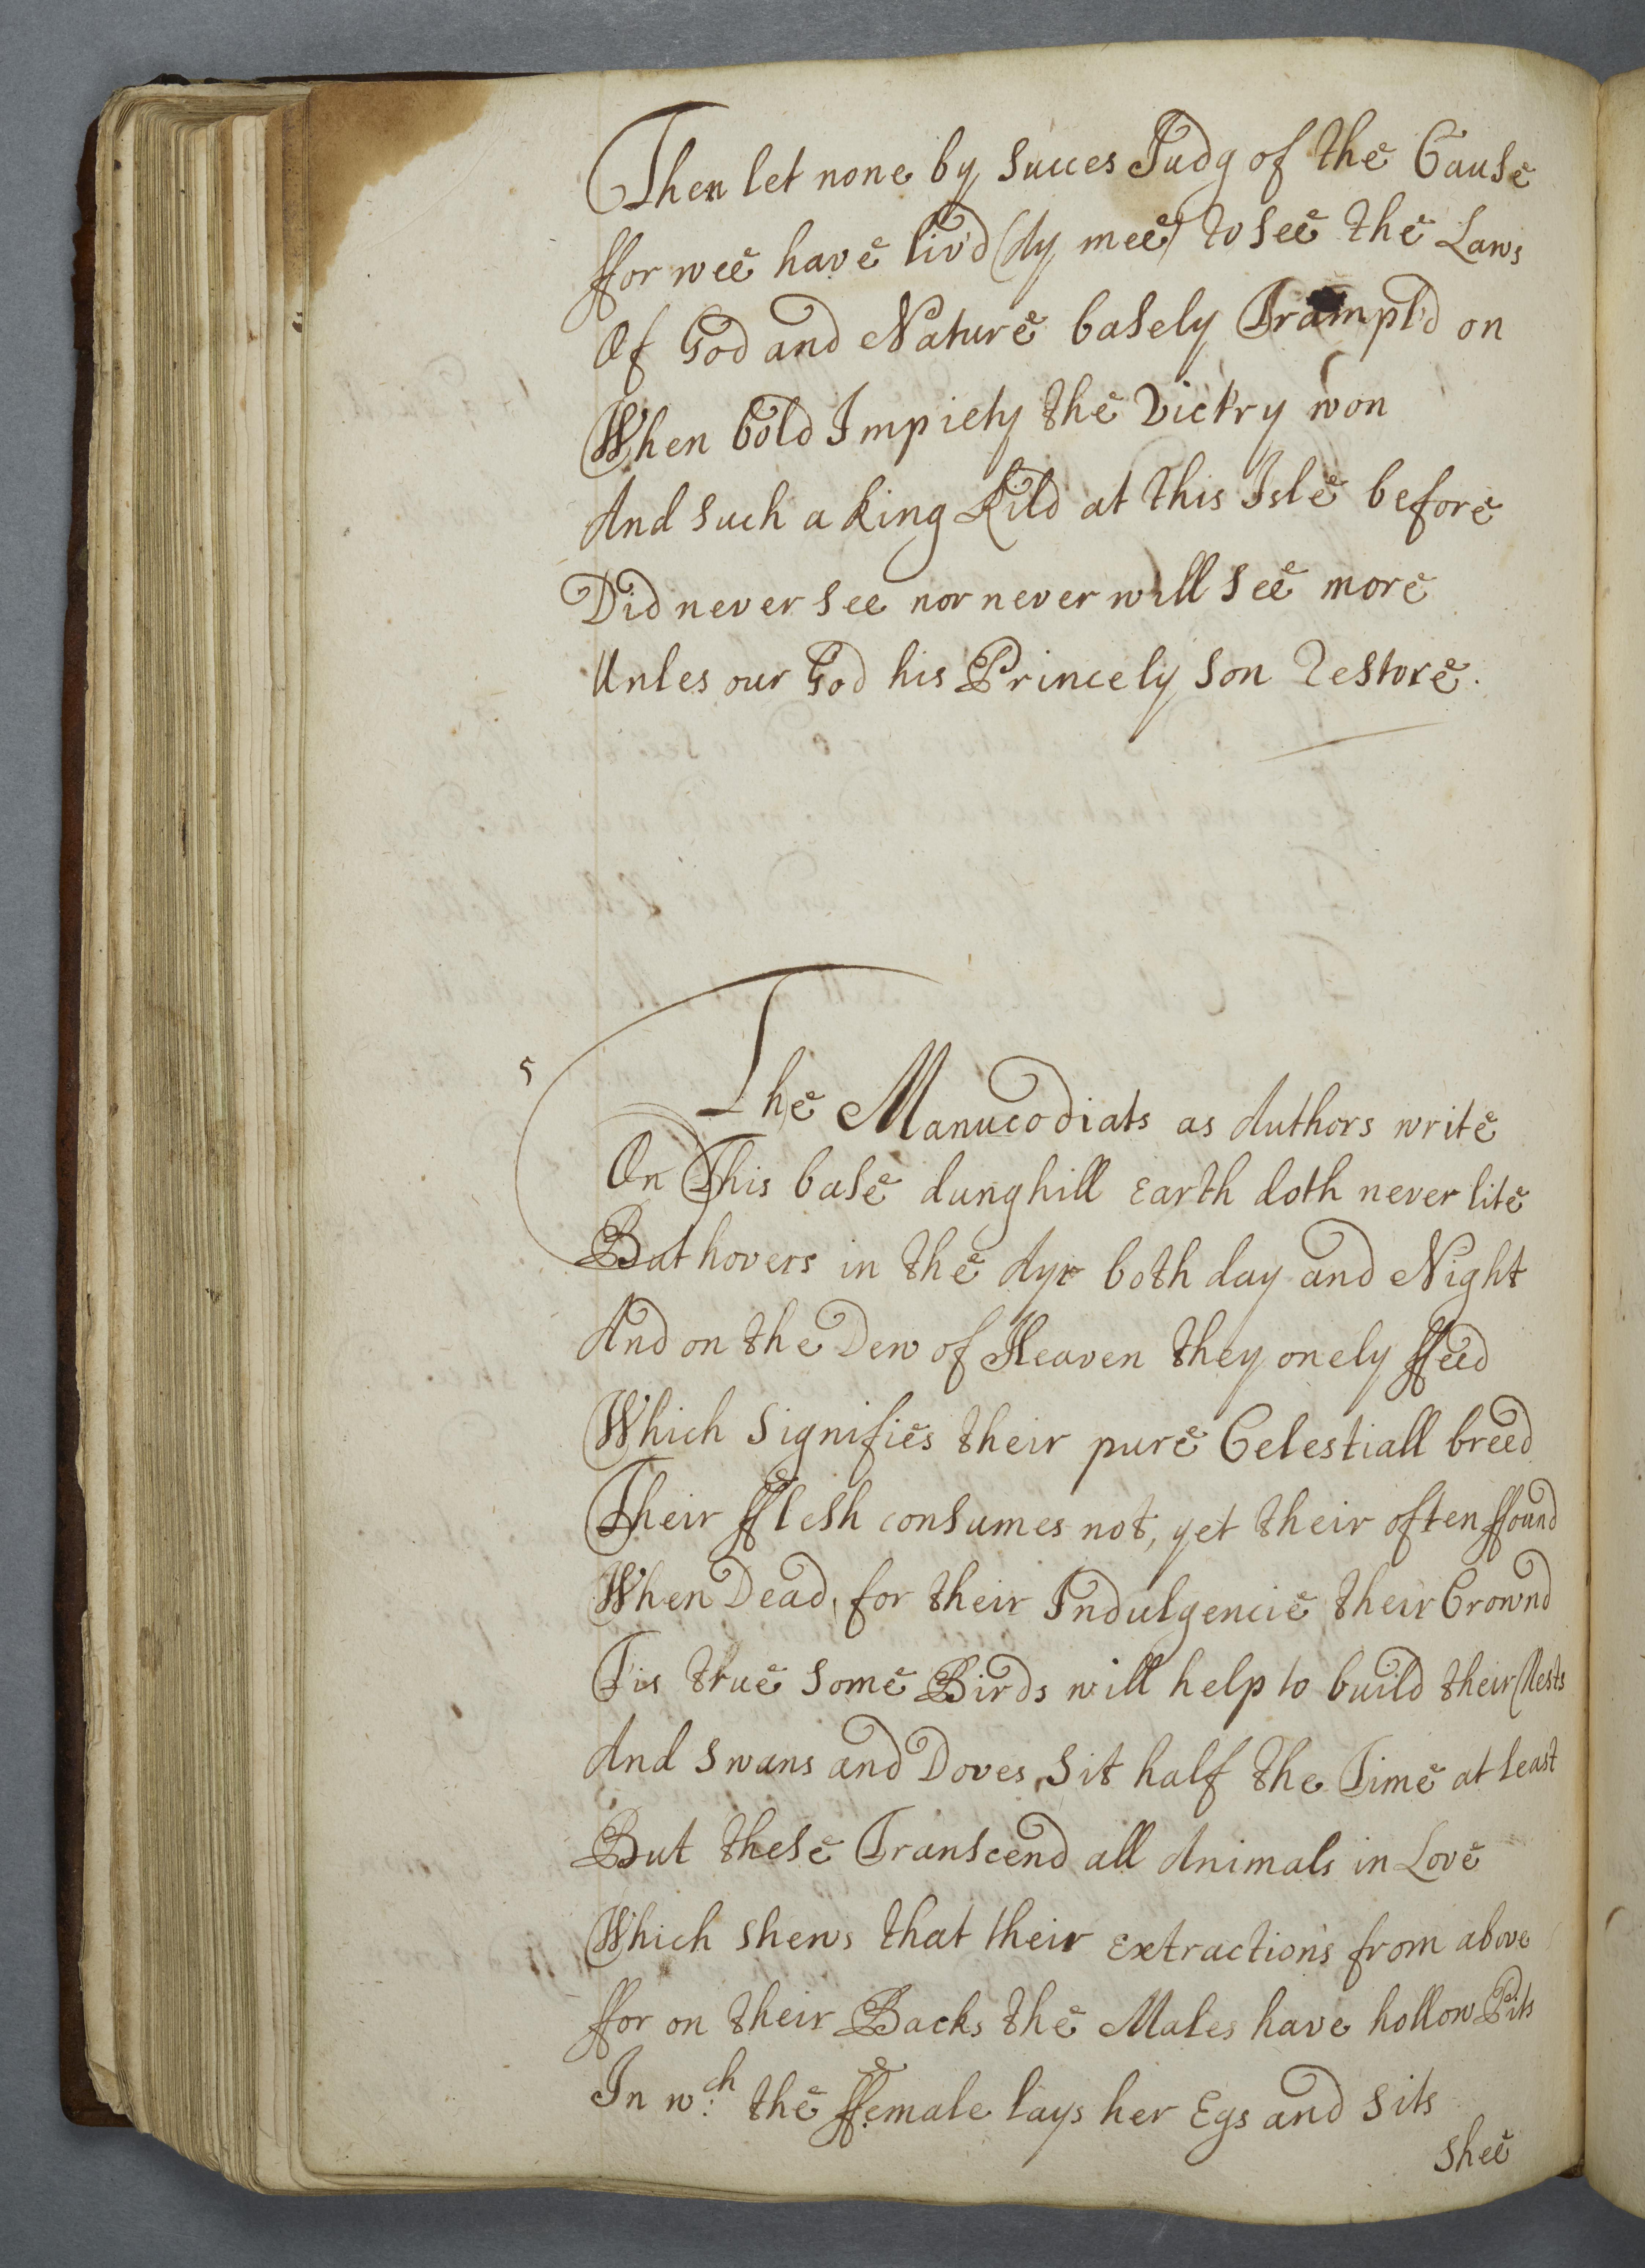 Then let none by Succes Judg of the Cause
ffor wee have liv'd (Ay mee) to See the Laws
Of God and Nature basely Trampl'd on
When bold Impiety the Victry won
And Such a King Kild at this Isle before
Did never See nor never will See more
Unles our God his Princely Son Restore.
5
The Manucodiats as Authors write
On This base dunghill Earth doth never lite
But hovers in the Ayr both day and Night
And on the Dew of Heaven they onely ffeed
Which Signifies their pure Celestiall breed
Their fflesh consumes not, yet their often ffound
When Dead, for their Indulgencie their Crownd
Tis true Some Birds will help to build their Nests
And Swans and Doves Sit half the Time at least
But these Transcend all Animals in Love
Which Shews that their extraction's from above
ffor on their Backs the Males have hollow Pits
In wch: the ffemale lays her Egs and Sits
Shee